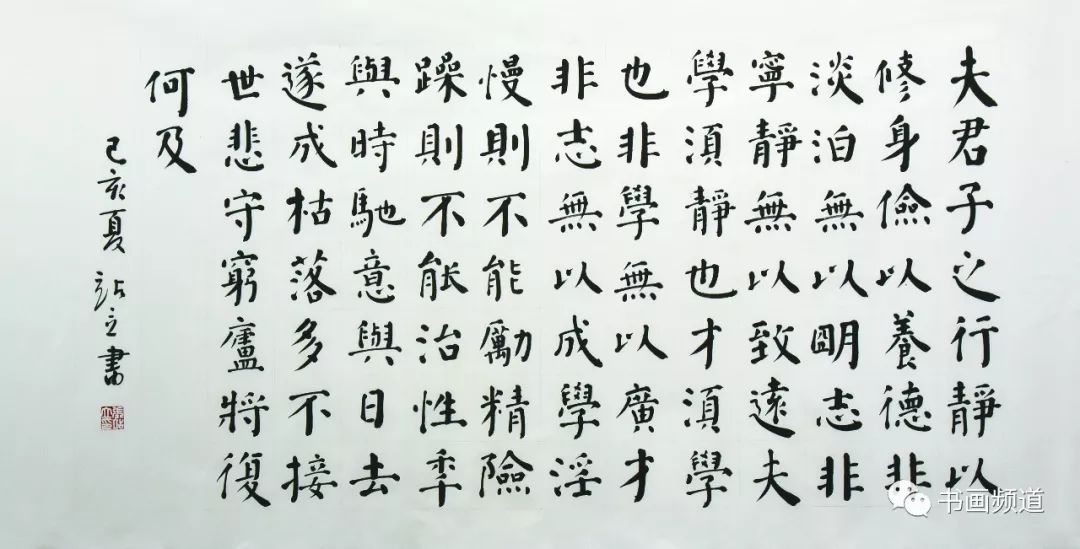 夫君子之行靜以
修身儉以養德非
淡泊無以眀志非
寧靜無以致遠夫
學須靜也才須學
也非學無以廣才
非志無以成學淫
慢則不能勵精險
躁則不能治性年
與時馳意與日去
遂成枯落多不接
世悲守窮廬將復
何及
己亥夏 立書
书画频道